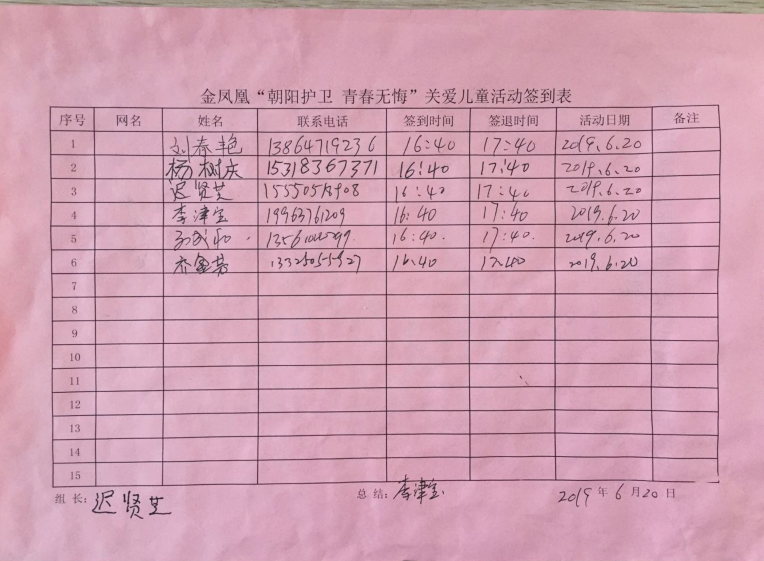 金凤凰“朝阳护卫 青春无悔”关爱儿童活动签到表
序号 网名 姓名 联系电话 签到时间 签退时间 活动日期 备注
1 刘春艳 13864719236 16:40 17:40 2019.6.20
2 杨树庆 15318367371 16:40 17:40 2019.6.20
3 迟贤芝 16:40 17:40 2019.6.20
4 李津宝 19963761209 16:40 17:40 2019.6.20
5 16:40 17:40 2019.6.20
6 16:40 17:40 2019.6.20
7
8
9
10
11
12
13
14
15
组长: 迟贤芝 总结: 李津宝 2019年6月20日